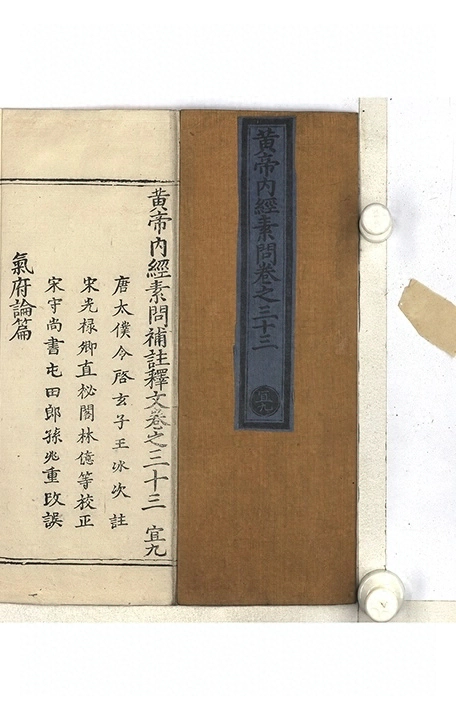 黄帝內經素問卷之三十三
宜九
黄帝內經素問補註釋文卷之三十三 宜九
唐太僕令啓玄子王冰次註
宋光禄卿直秘閣林億等校正
宋守尚書屯田郎孫兆重改誤
氣府論篇